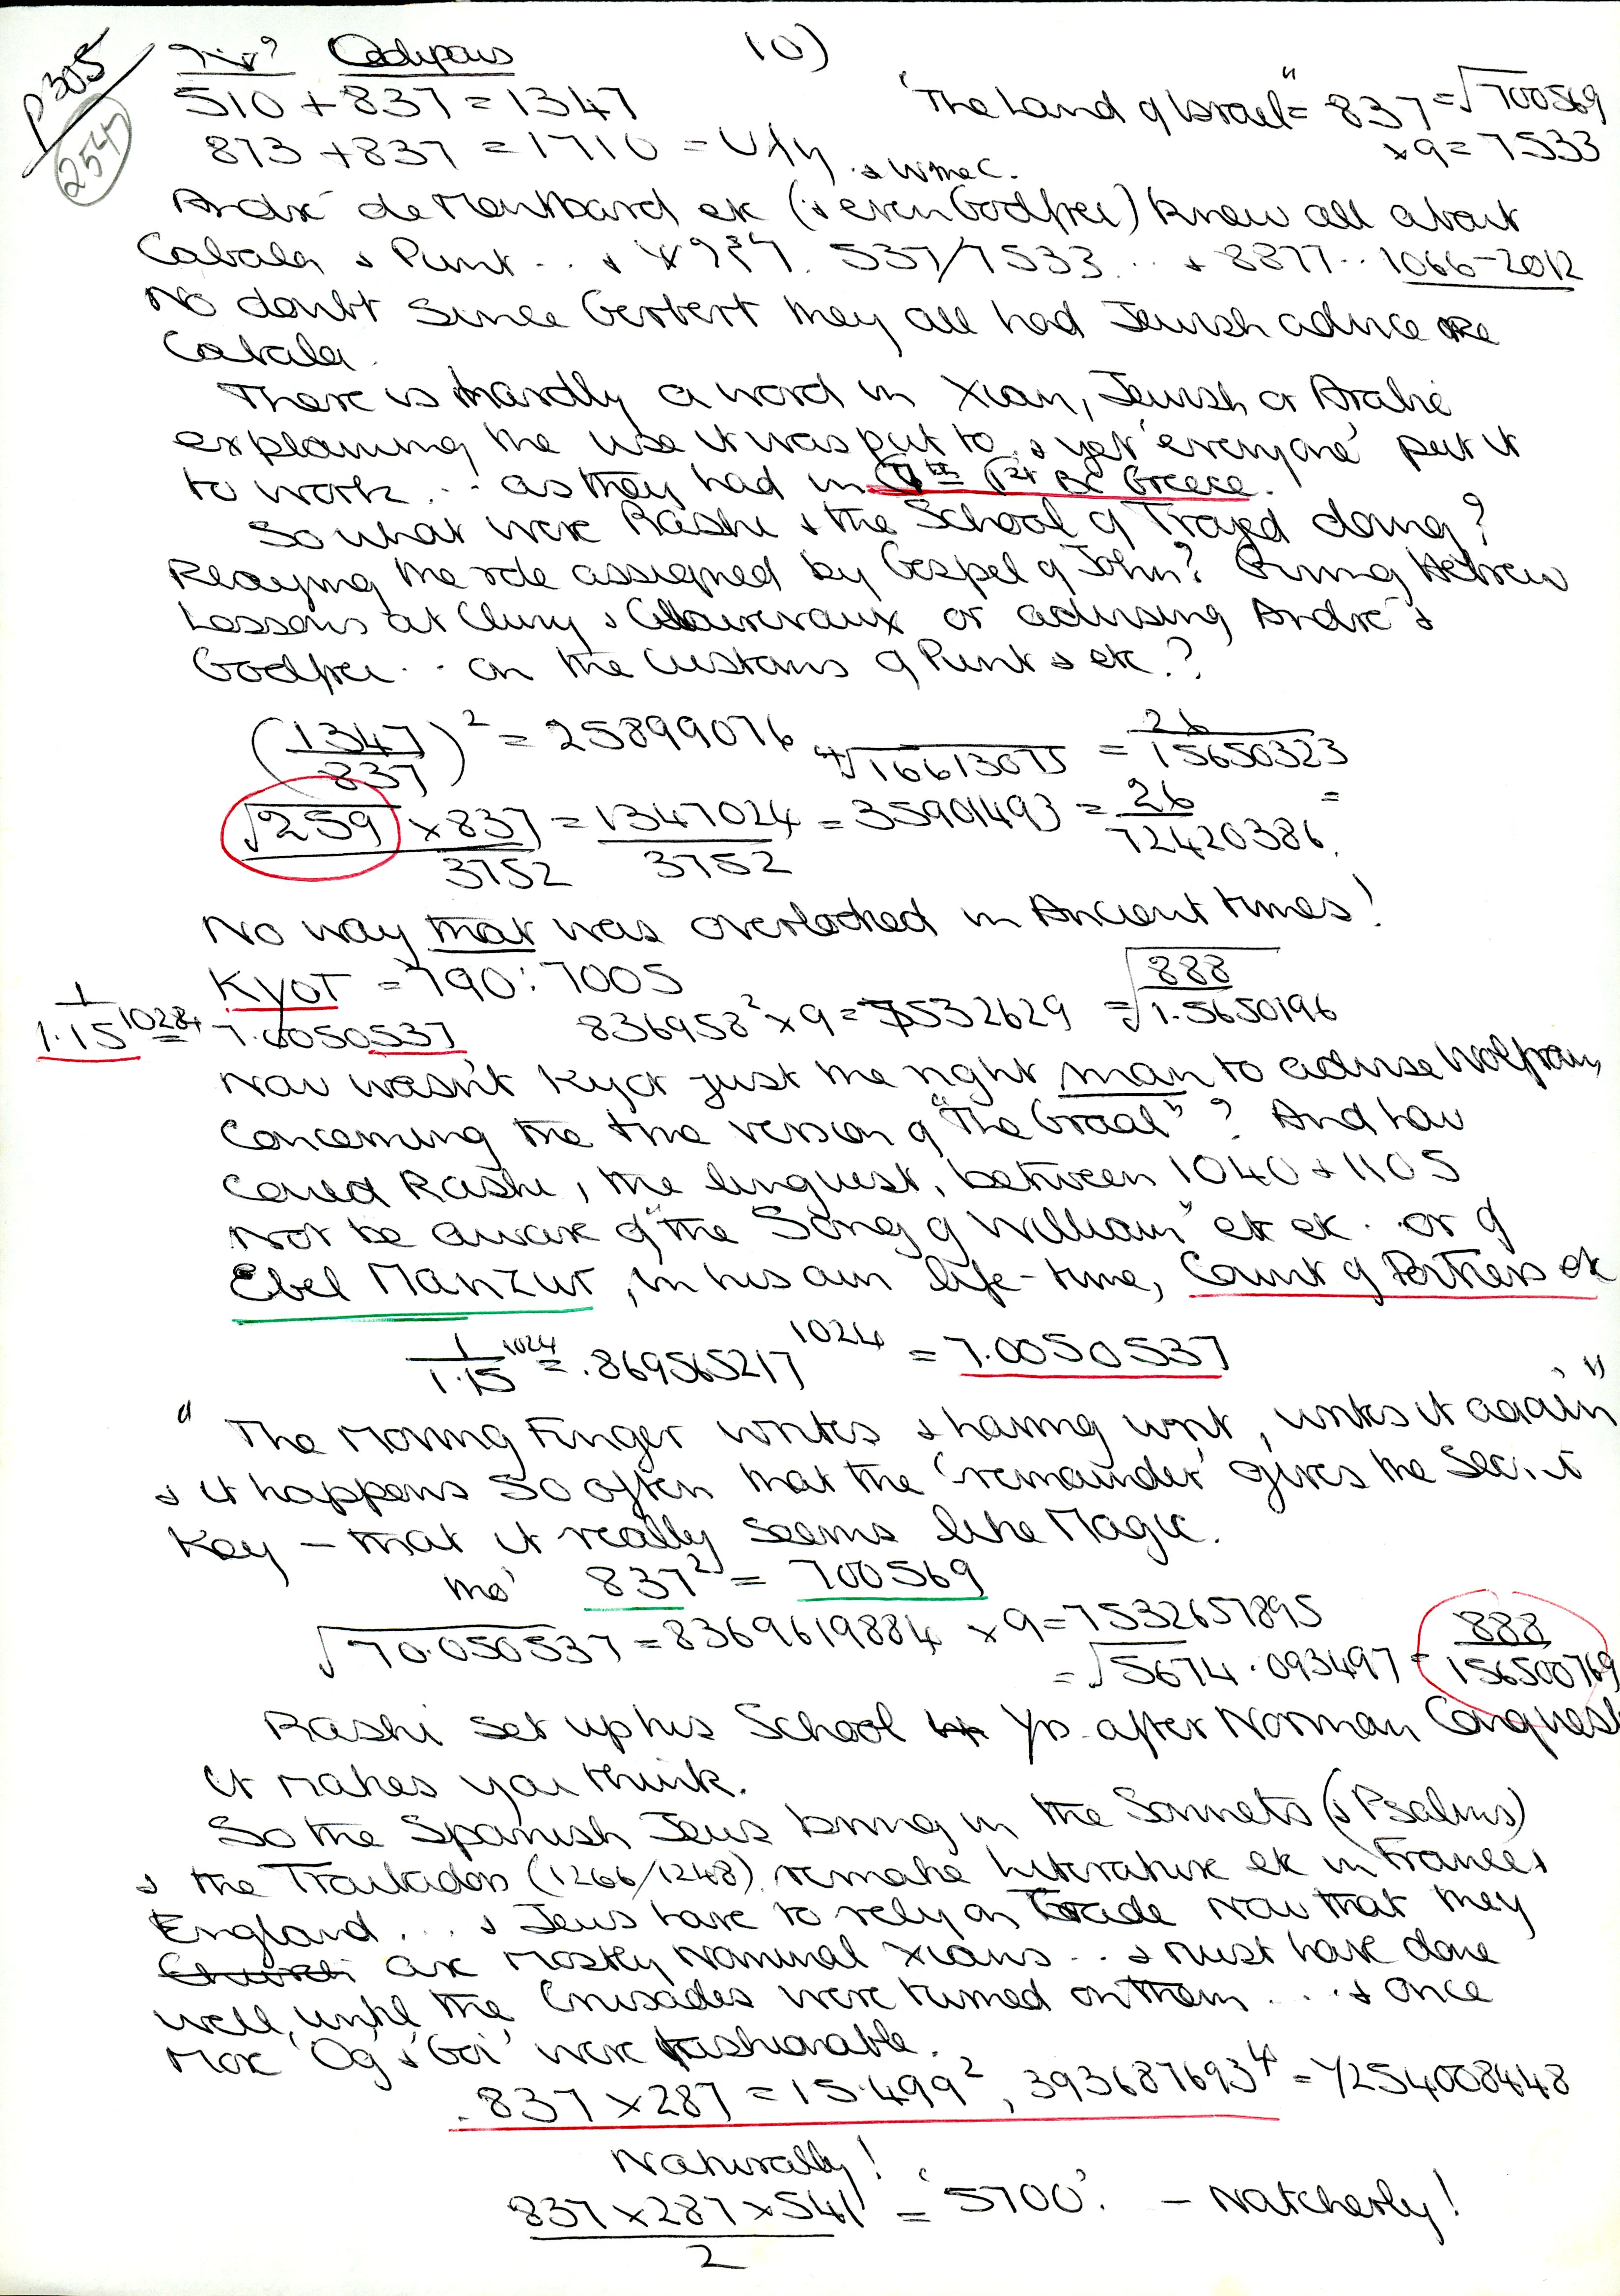 P305
254
Oedipus
10)
510 + 837 = 1347
"The Land of Israel" = 837 = √700569
873 + 837 = 1710 =
x 9 = 7533
& Wmec.
André de Montbard etc (& even Godfrei) knew all about
Cabala & Punt .. & 537/7533 .. & 8877 .. 1066-2012
No doubt since Gerbert they all had Jewish advice re
Cabala.
There is hardly a word in Xian, Jewish or Arabic
explaining the use it was put to, & yet 'everyone' put it
to work... as they had in BC Greece.
So what were Rashi & the School of Troyed doing?
Relaying the role assigned by Gospel of John? Giving Hebrew
Lessons at Cluny & Clairevaux or advising André &
Godfrei .. on the customs of Punt & etc.?
(1347/837)² = 25899076 ⁴√16613075 = 26/15650323
√259 x 837/3752 = 1347024/3752 = 35901493 = 26/72420386.
=
No way that was overlooked in Ancient times!
KyoT = 790 : 7005
1/1.15 1024 = 7.0050537
836958² x 9 = 7532629 = √888/1.5650196
Now wasn't Kyot just the right man to advise Wolfram,
concerning the true version of "The Graal"? And how
could Rashi, the linguest, between 1040 & 1105
not be aware of "the Song of William" etc etc. or of
Ebel Manzur, in his own life-time, Count of Portiers etc
1/1.15 1024 = .869565217 1024 = 7.0050537
"The Moving Finger writes & having writ, writes it again"
& it happens so often that the 'remainder' gives the Secret
Key – that it really seems like Magic.
mo' 837² = 700569
√70.050537 = 8369619884 x 9 = 7532657895
= √5674.093497 = 888/156500769
Rashi set up his School Yrs after Norman Conquest
it makes you think.
So the Spanish Jews bring in the Sonnets (& Psalms)
& the Troubadors (1266/1248) remake literature etc in France &
England... & Jews have to rely on Trade now that they
are mostly nominal Xians .. & must have done
well, until the Crusades were turned on them ... & once
more 'Og & Goi' were fashionable.
.837 x 287 = 15.499², 393687693⁴ = 1/254008448
Naturally!
837 x 287 x 541/2 = '5700'. – Natcherly!